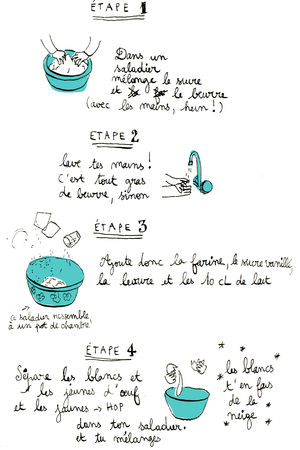 ÉTAPE 1
Dans un
saladier
mélange le sucre
et le beurre
(avec les mains, hein!)
ETAPE 2
lave tes mains!
C'est tout gras
de beurre, sinon
ÉTAPE 3
Ajoute donc la farine, le sucre vanillé,
la levure et les 10 cL de lait
ce saladier ressemble
à un pot de chambre!
ÉTAPE 4
Sépare les blancs et
les jaunes d'œuf
et les jaunes → HOP
dans ton saladier.
et tu mélanges
les blancs
t'en fais
de la
neige